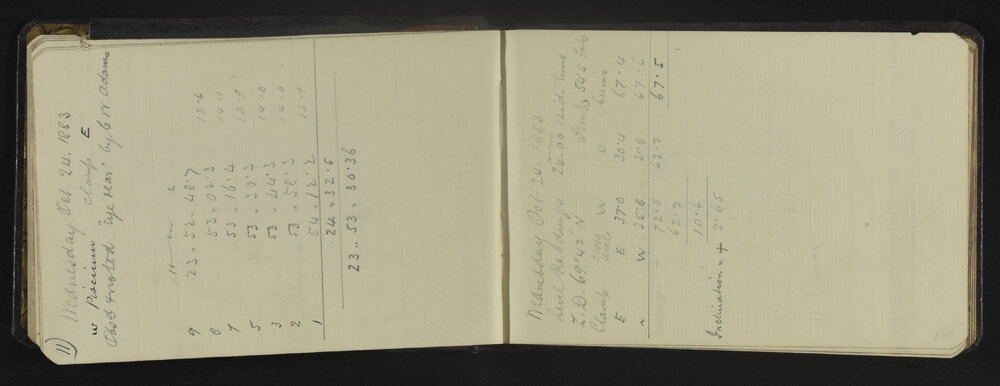 11)
Wednesday Oct 24. 1883
ω Piscium clamp E
Obsd & noted "eye & ear" by C W. Adams
H m s
9 23 .. 52 .. 48.7
8 53 .. 02.3 13.6
7 53 .. 16.4 14.1
5 53 .. 30.3 13.9
3 53 .. 44.3 14.0
2 53 .. 58.3 14.0
1 54 .. 12.2 13.9
24 .. 32.5
23 .. 53 .. 30.36
Wednesday Oct 24. 1883
Level Readings 24.00 sid. time
Z.D. 69°42 N Temp 54.5
Clamp W E Sums
E E 37.0 30.4 67.4
" W 35.8 31.8 67.6
72.8 62.2 67.5
62.2
10.6
Inclination = + 2.65